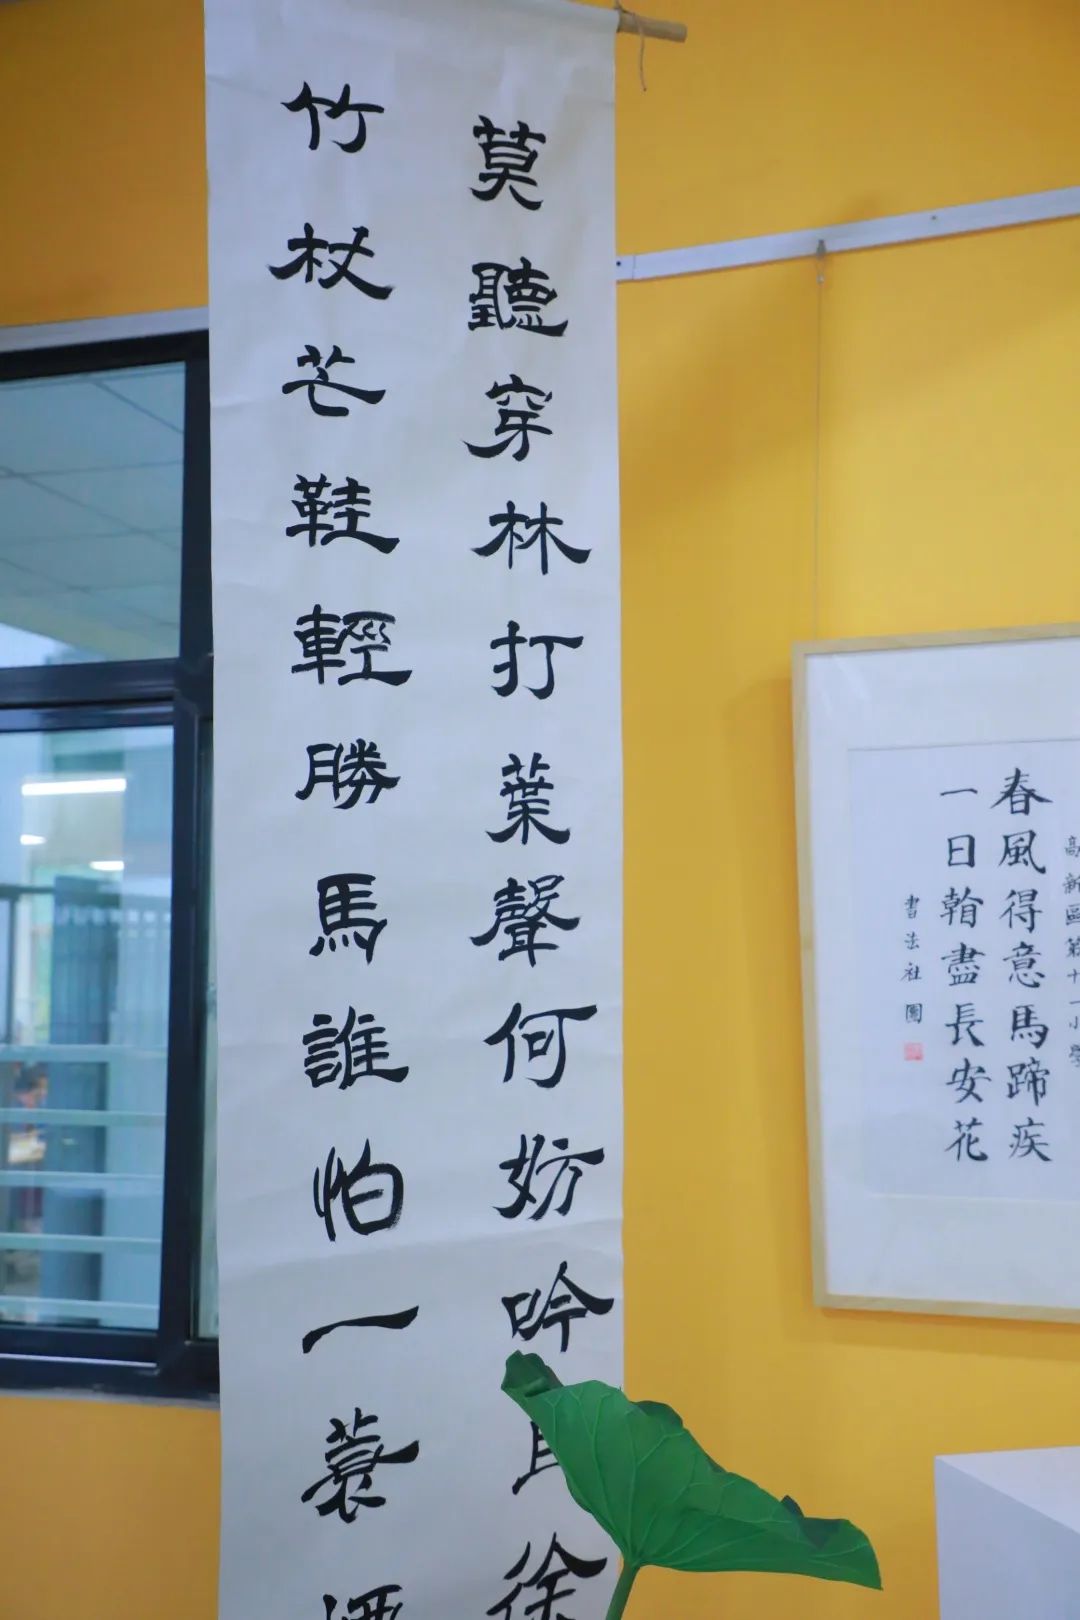 莫聽穿林打葉聲何妨吟徐
竹杖芒鞋輕勝馬誰怕一蓑
高新區第十一小學
春風得意馬蹄疾
一日看盡長安花
書法社團